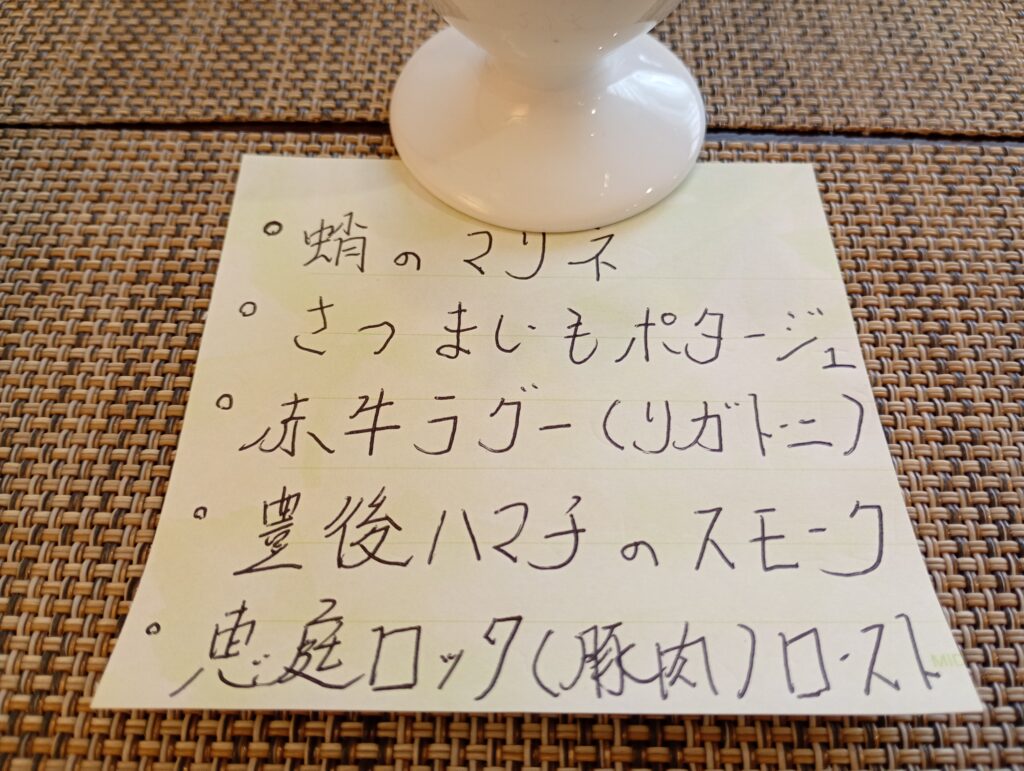 ° 蛸のマリネ
° さつまいもポタージュ
° 赤牛ラグー(リガトーニ)
° 豊後ハマチのスモーク
° 恵庭ロック(豚肉)ロースト